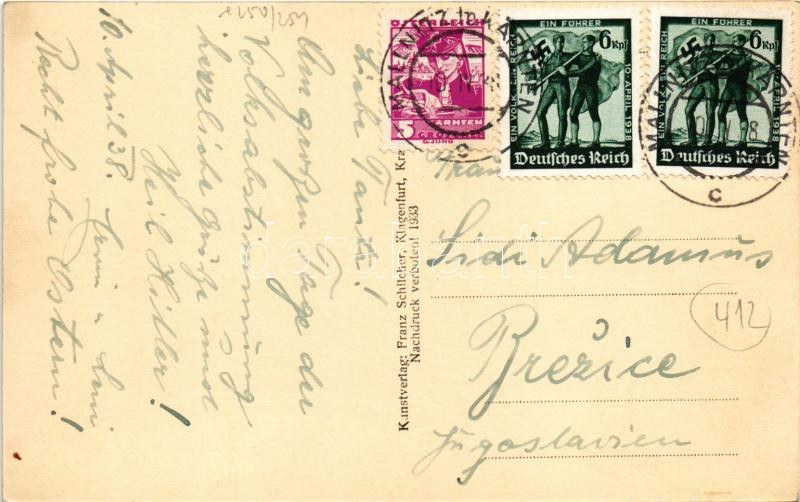 e250/251
Liebe Tante!
Am großen Tage der
Volksabstimmung
herzliche Grüße und
Heil Hitler!
10. April 38.
Recht frohe Ostern!
Kunstverlag: Franz Schilcher, Klagenfurt, Kra
Nachdruck verboten! 1933
ÖSTERREICH
5
KÄRNTEN
GROSCHEN
G. JUNG
MALLNITZ in KÄRNTEN
c
EIN FÜHRER
6 Rpf
EIN VOLK EIN REICH
10. APRIL 1938
Deutsches Reich
EIN FÜHRER
6 Rpf
EIN VOLK EIN REICH
10. APRIL 1938
Deutsches Reich
MALLNITZ in KÄRNTEN
c
Frau
Lidi Adamus
Brežice
Jugoslavien
412
darabanth